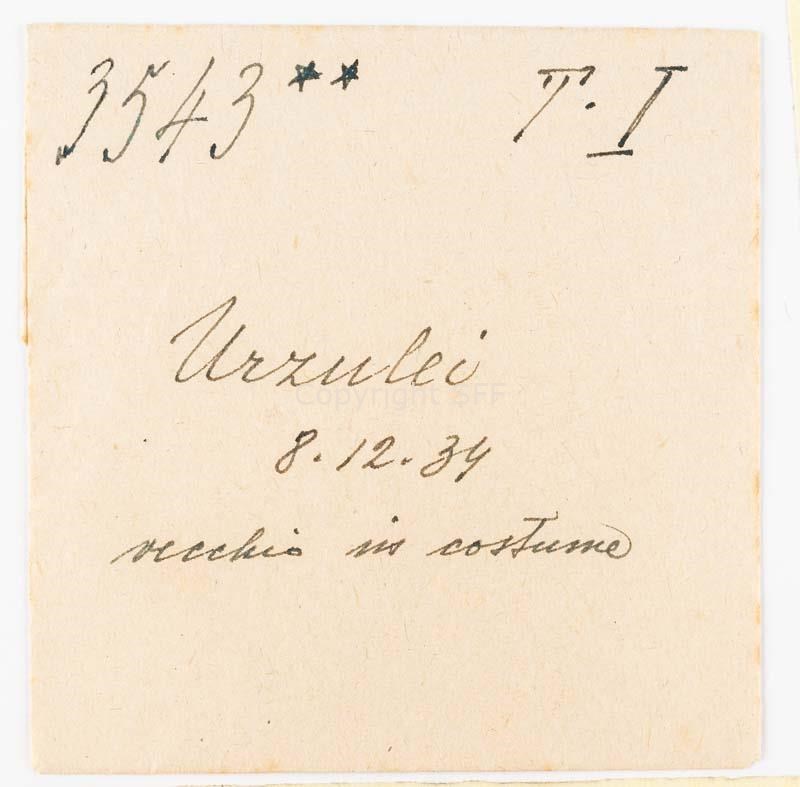 3543** T. I
Urzulei
Copyright SFF
8.12.34
vecchio in costume